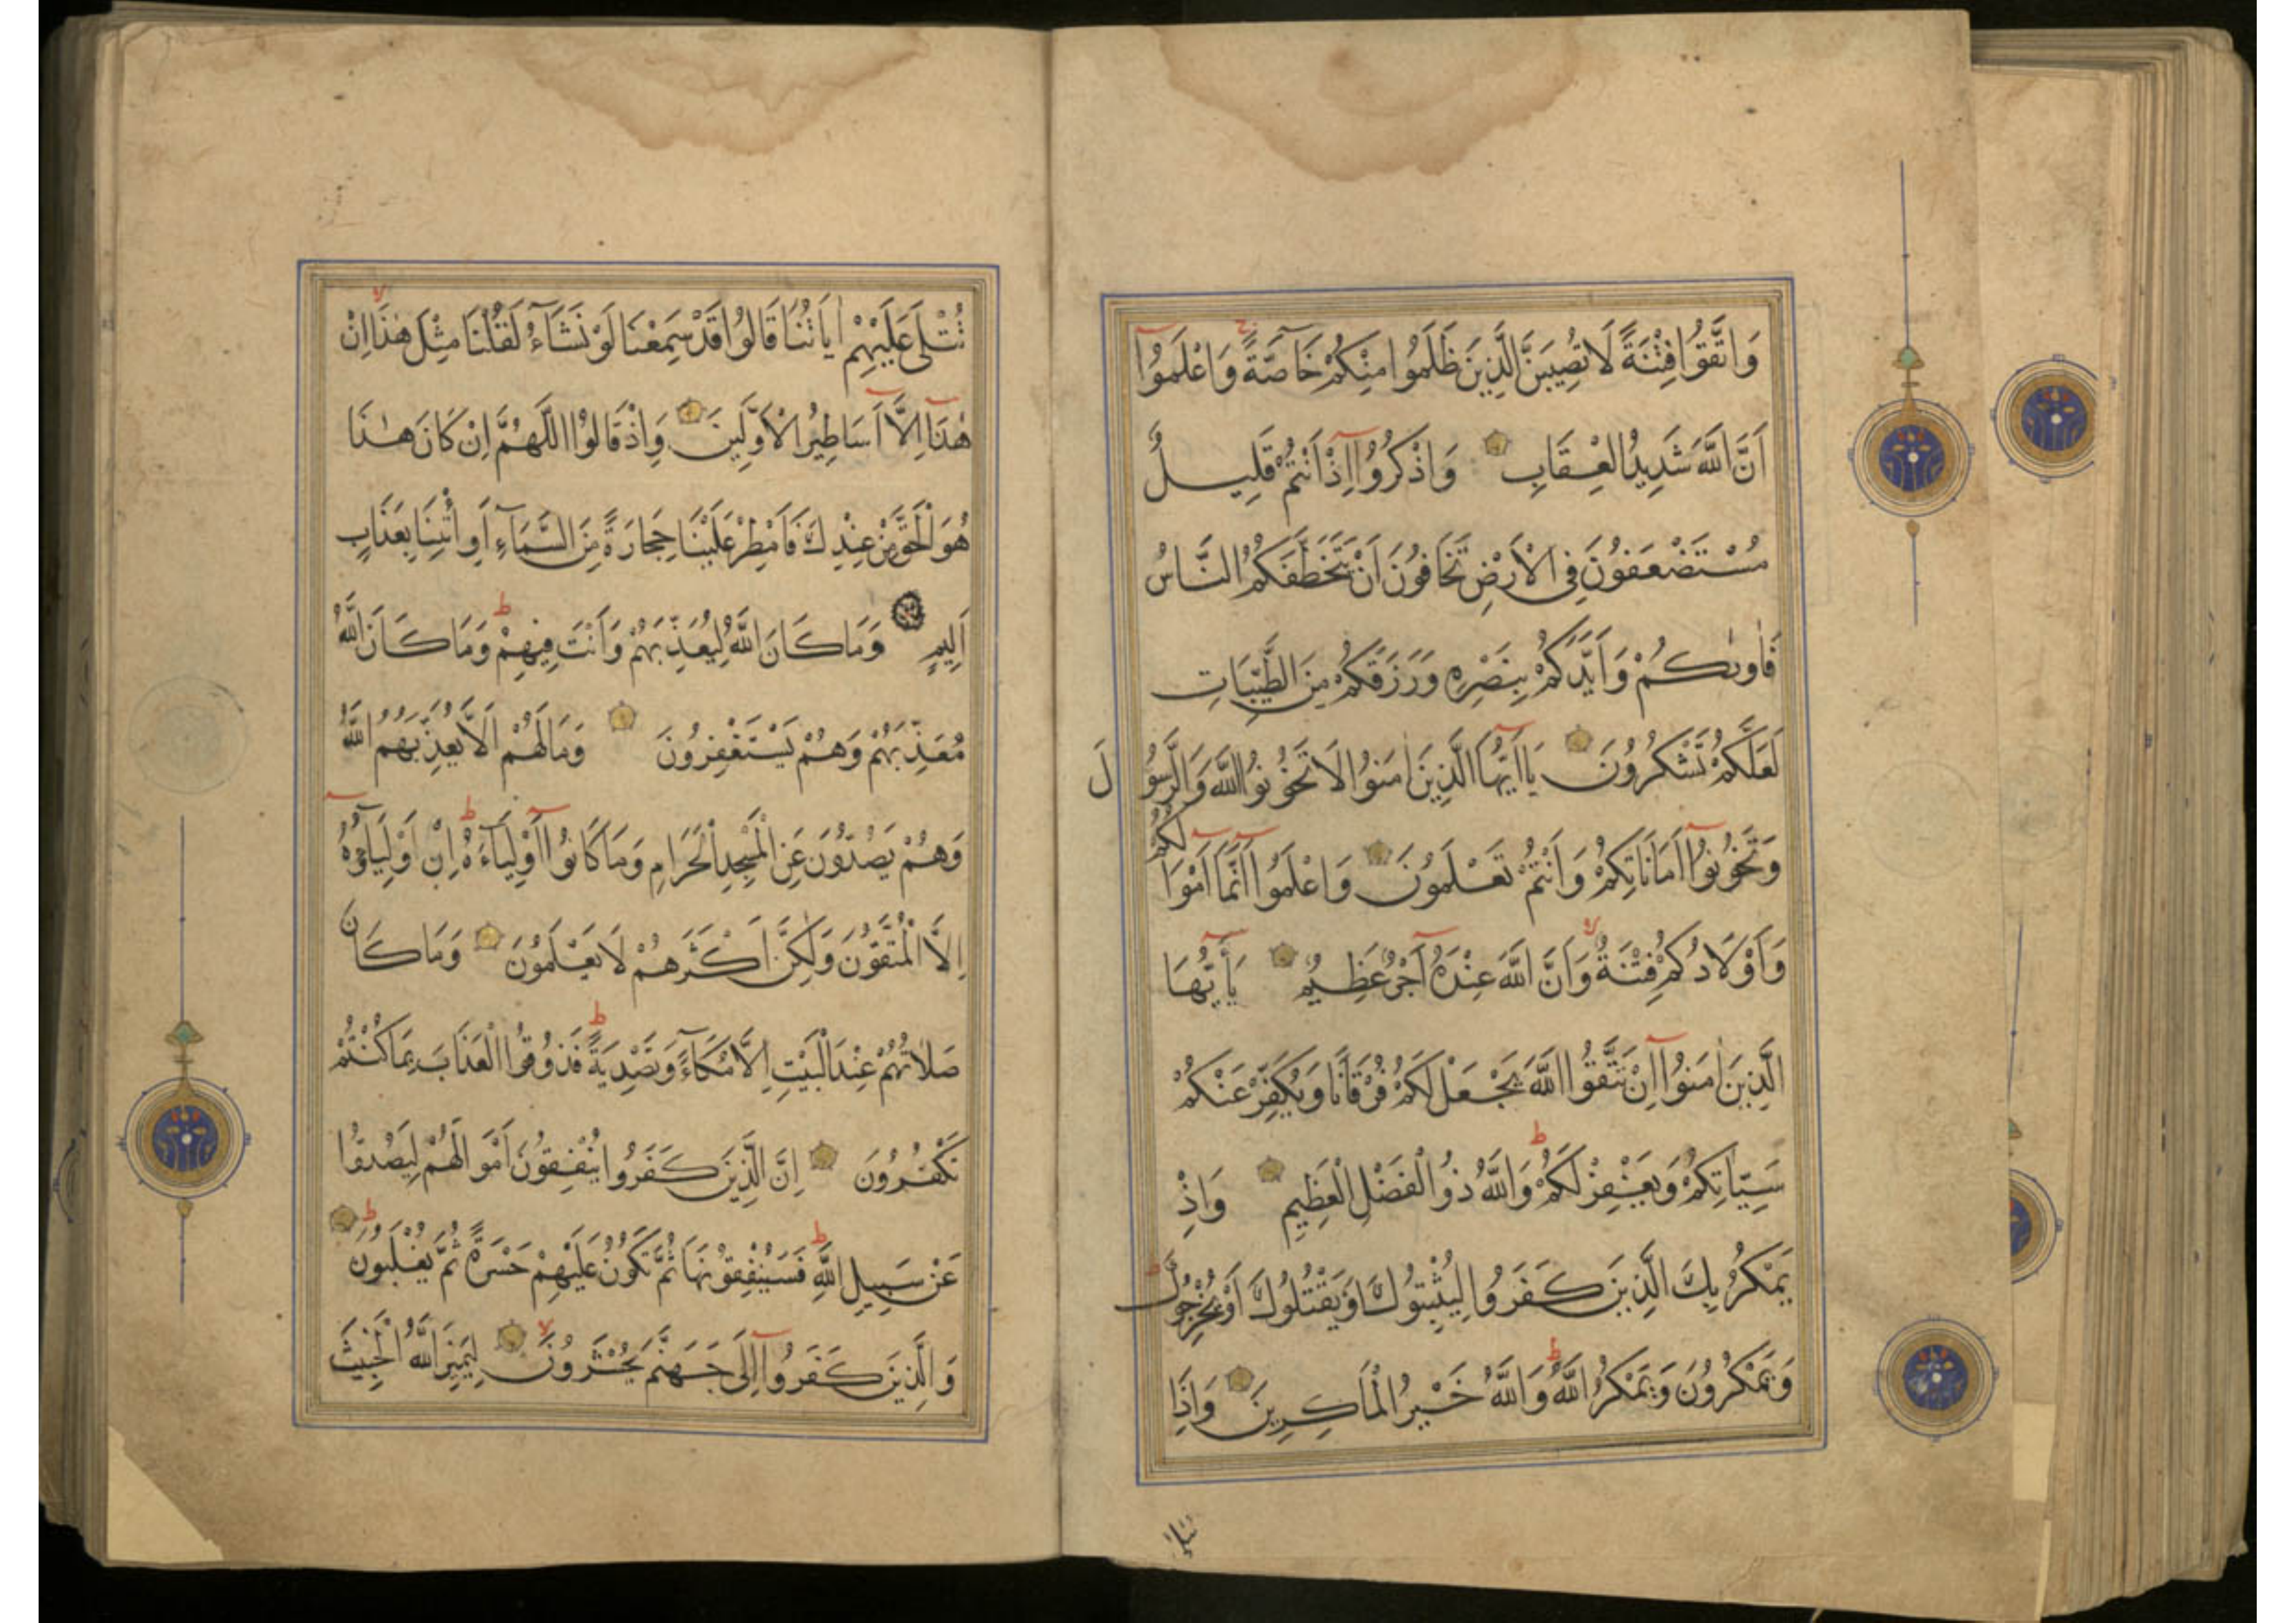 وَاتَّقُوا فِتْنَةً لَا تُصِيبَنَّ الَّذِينَ ظَلَمُوا مِنْكُمْ خَاصَّةً وَاعْلَمُوا
أَنَّ اللَّهَ شَدِيدُ الْعِقَابِ وَاذْكُرُوا إِذْ أَنْتُمْ قَلِيلٌ
مُسْتَضْعَفُونَ فِي الْأَرْضِ تَخَافُونَ أَنْ يَتَخَطَّفَكُمُ النَّاسُ
فَاٰوٰىكُمْ وَأَيَّدَكُمْ بِنَصْرِهِ وَرَزَقَكُمْ مِنَ الطَّيِّبَاتِ
لَعَلَّكُمْ تَشْكُرُونَ يَا أَيُّهَا الَّذِينَ اٰمَنُوا لَا تَخُونُوا اللَّهَ وَالرَّسُولَ
وَتَخُونُوا أَمَانَاتِكُمْ وَأَنْتُمْ تَعْلَمُونَ وَاعْلَمُوا أَنَّمَا أَمْوَالُكُمْ
وَأَوْلَادُكُمْ فِتْنَةٌ وَأَنَّ اللَّهَ عِنْدَهُ أَجْرٌ عَظِيمٌ يَأَيُّهَا
الَّذِينَ اٰمَنُوا إِنْ تَتَّقُوا اللَّهَ يَجْعَلْ لَكُمْ فُرْقَانًا وَيُكَفِّرْ عَنْكُمْ
سَيِّاٰتِكُمْ وَيَغْفِرْ لَكُمْ وَاللَّهُ ذُو الْفَضْلِ الْعَظِيمِ وَإِذْ
يَمْكُرُ بِكَ الَّذِينَ كَفَرُوا لِيُثْبِتُوكَ أَوْ يَقْتُلُوكَ أَوْ يُخْرِجُوكَ
وَيَمْكُرُونَ وَيَمْكُرُ اللَّهُ وَاللَّهُ خَيْرُ الْمَاكِرِينَ وَإِذَا
تتلى
تُتْلَى عَلَيْهِمْ اٰيَاتُنَا قَالُوا قَدْ سَمِعْنَا لَوْ نَشَآءُ لَقُلْنَا مِثْلَ هٰذَا إِنْ
هٰذَا إِلَّا أَسَاطِيرُ الْأَوَّلِينَ وَإِذْ قَالُوا اللَّهُمَّ إِنْ كَانَ هٰذَا
هُوَ الْحَقَّ مِنْ عِنْدِكَ فَأَمْطِرْ عَلَيْنَا حِجَارَةً مِنَ السَّمَآءِ أَوِ ائْتِنَا بِعَذَابٍ
أَلِيمٍ وَمَا كَانَ اللَّهُ لِيُعَذِّبَهُمْ وَأَنْتَ فِيهِمْ وَمَا كَانَ اللَّهُ
مُعَذِّبَهُمْ وَهُمْ يَسْتَغْفِرُونَ وَمَا لَهُمْ أَلَّا يُعَذِّبَهُمُ اللَّهُ
وَهُمْ يَصُدُّونَ عَنِ الْمَسْجِدِ الْحَرَامِ وَمَا كَانُوا أَوْلِيَآءَهُ إِنْ أَوْلِيَآؤُهُ
إِلَّا الْمُتَّقُونَ وَلٰكِنَّ أَكْثَرَهُمْ لَا يَعْلَمُونَ وَمَا كَانَ
صَلَاتُهُمْ عِنْدَ الْبَيْتِ إِلَّا مُكَآءً وَتَصْدِيَةً فَذُوقُوا الْعَذَابَ بِمَا كُنْتُمْ
تَكْفُرُونَ إِنَّ الَّذِينَ كَفَرُوا يُنْفِقُونَ أَمْوَالَهُمْ لِيَصُدُّوا
عَنْ سَبِيلِ اللَّهِ فَسَيُنْفِقُونَهَا ثُمَّ تَكُونُ عَلَيْهِمْ حَسْرَةً ثُمَّ يُغْلَبُونَ
وَالَّذِينَ كَفَرُوا إِلَى جَهَنَّمَ يُحْشَرُونَ لِيَمِيزَ اللَّهُ الْخَبِيثَ